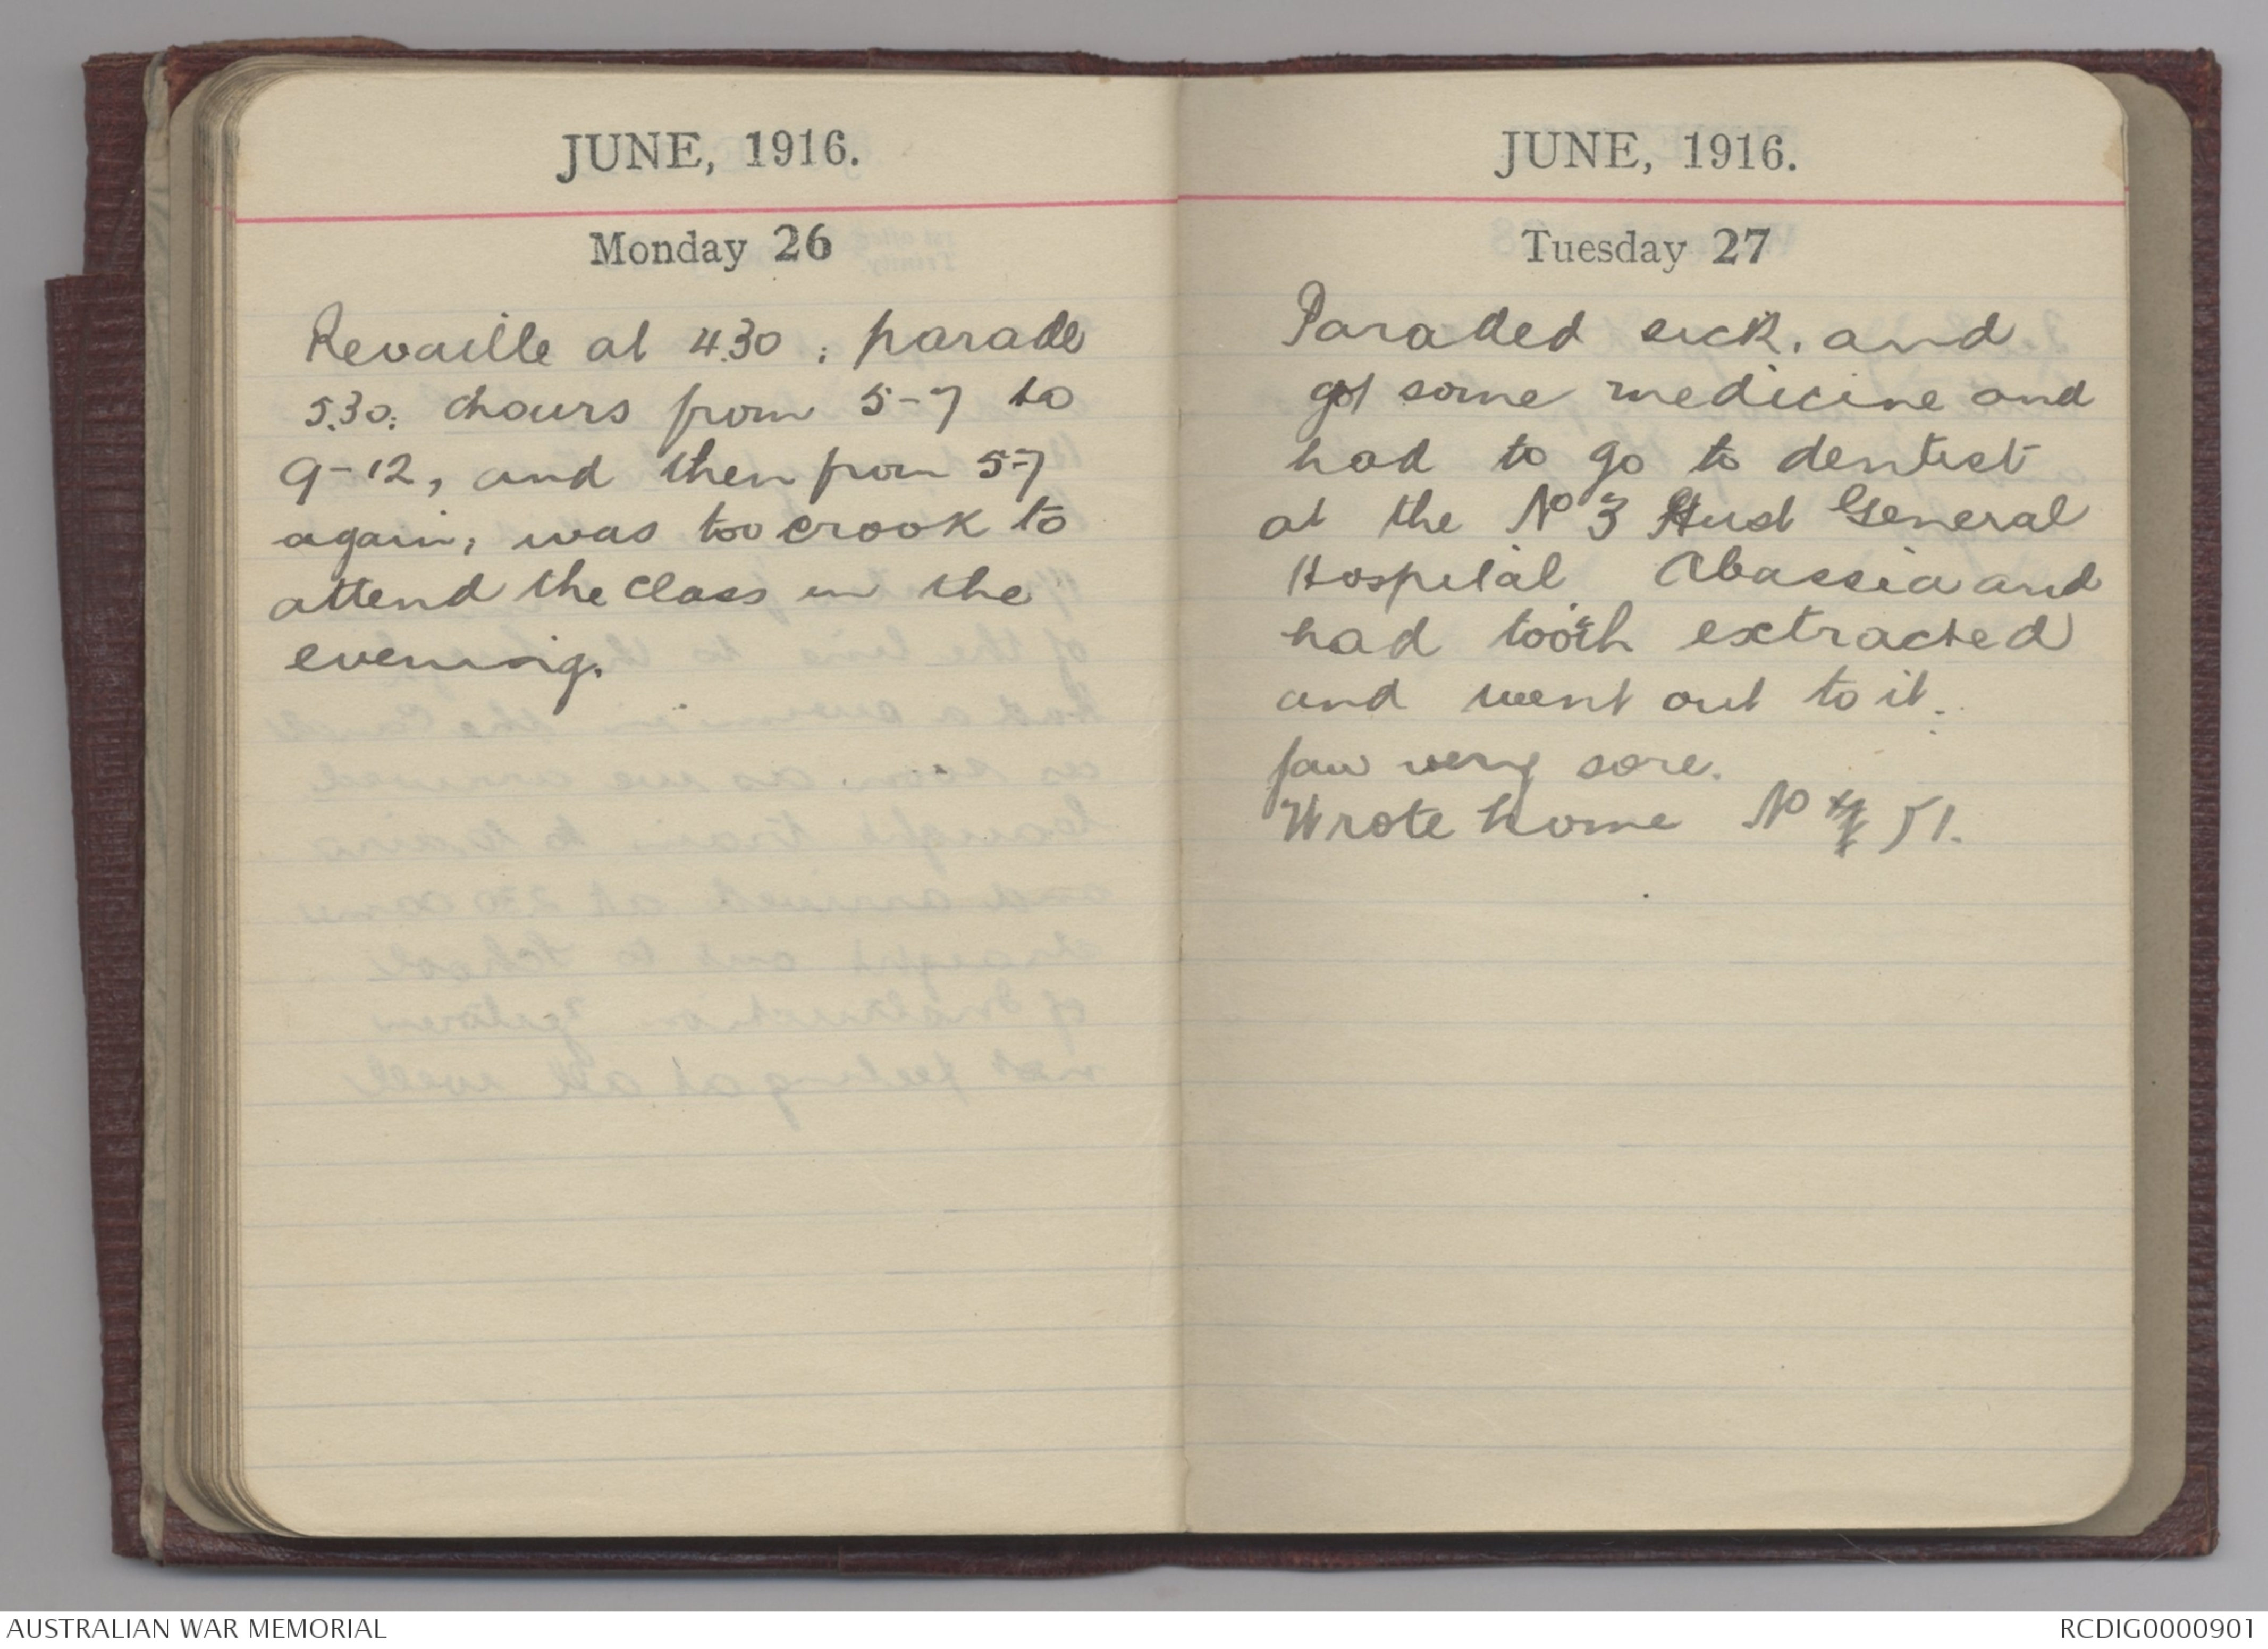 JUNE, 1916.
Monday 26
Revaille at 4.30; parade
5.30. hours from 5-7 to
9-12, and then from 5-7
again, was too crook to
attend the class in the
evening.
JUNE, 1916.
Tuesday 27
Paraded sick. and
got some medicine and
had to go to dentist
at the No 3 Aust General
Hospital Abassia and
had tooth extracted
and went out to it.
Jaw very sore.
Wrote home No 51.
AUSTRALIAN WAR MEMORIAL
RCDIG0000901